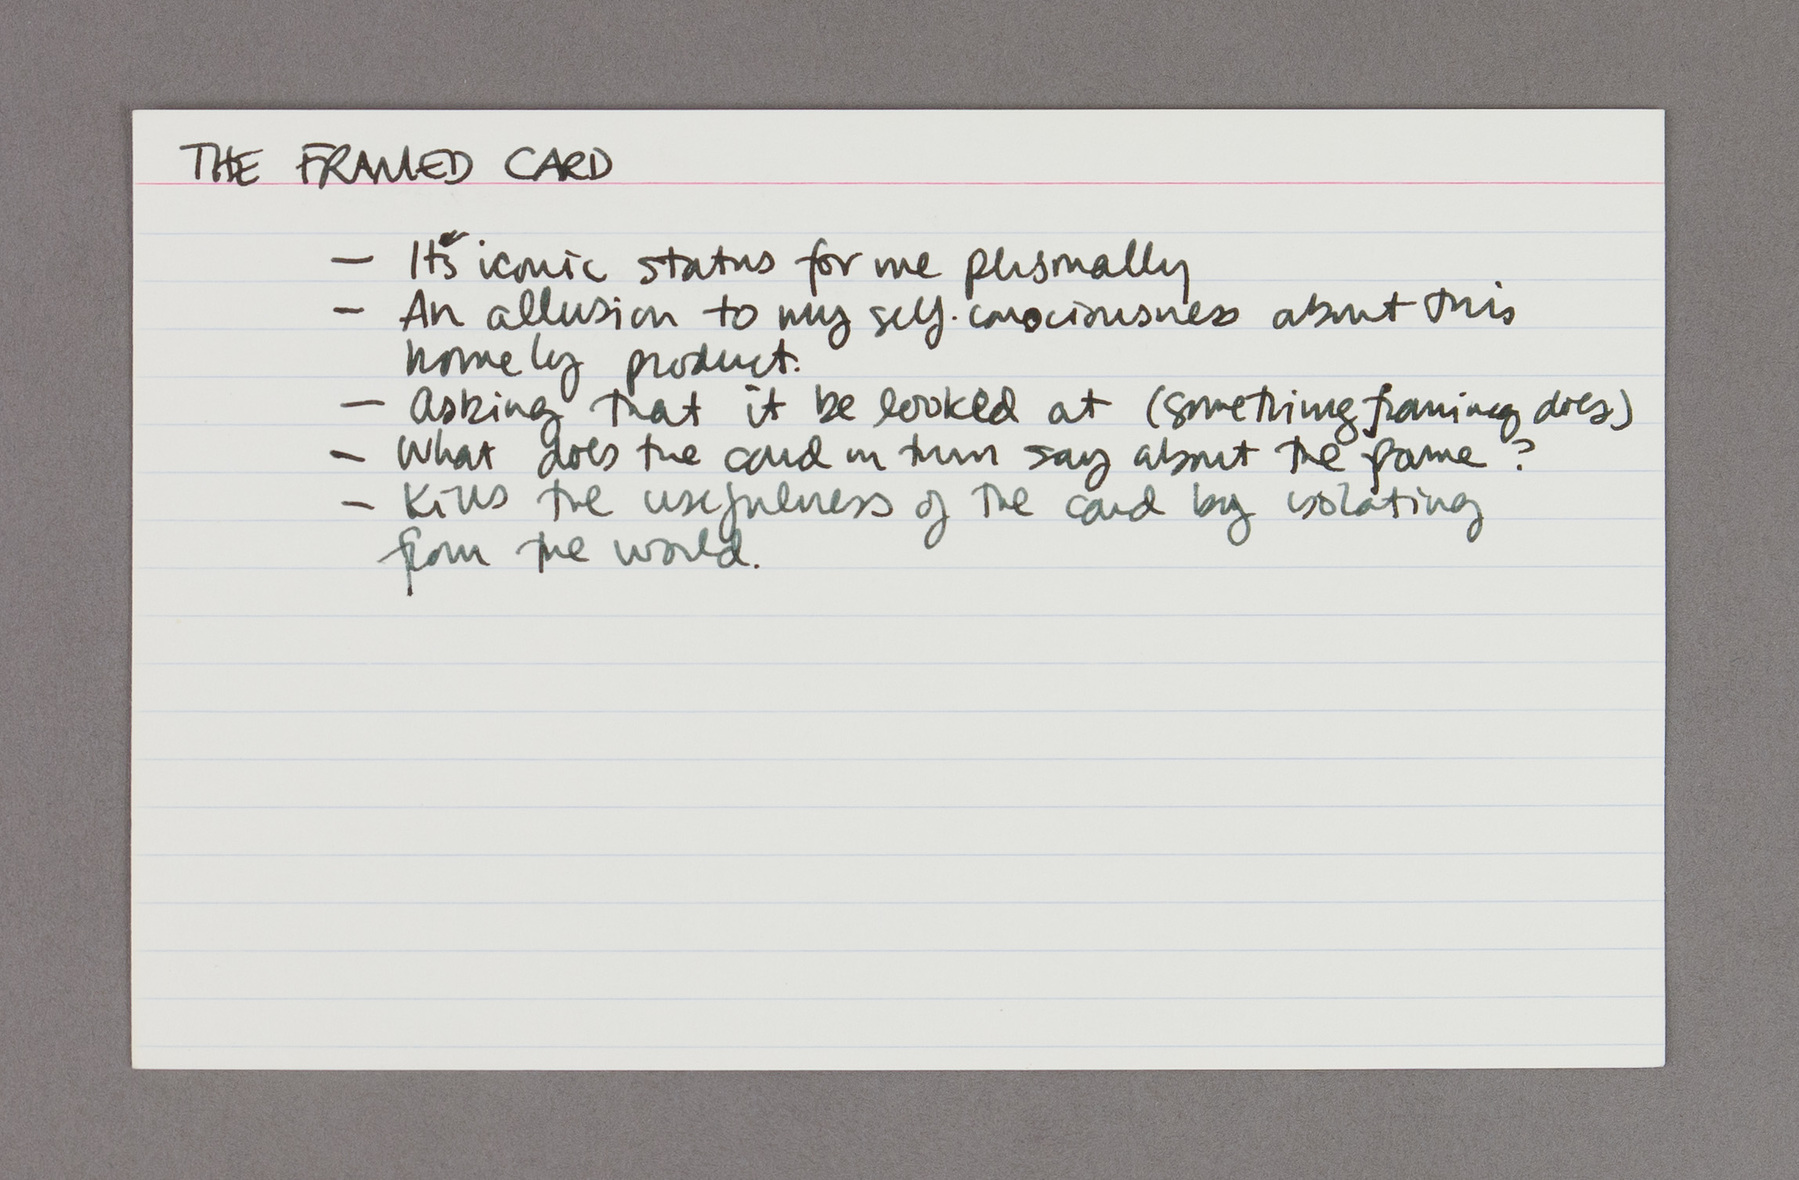 THE FRAMED CARD
– Its iconic status for me personally
– An allusion to my self-consciousness about this
homely product.
– Asking that it be looked at (something framing does)
– What does the card in turn say about the frame?
– Kills the usefulness of the card by isolating
from the world.